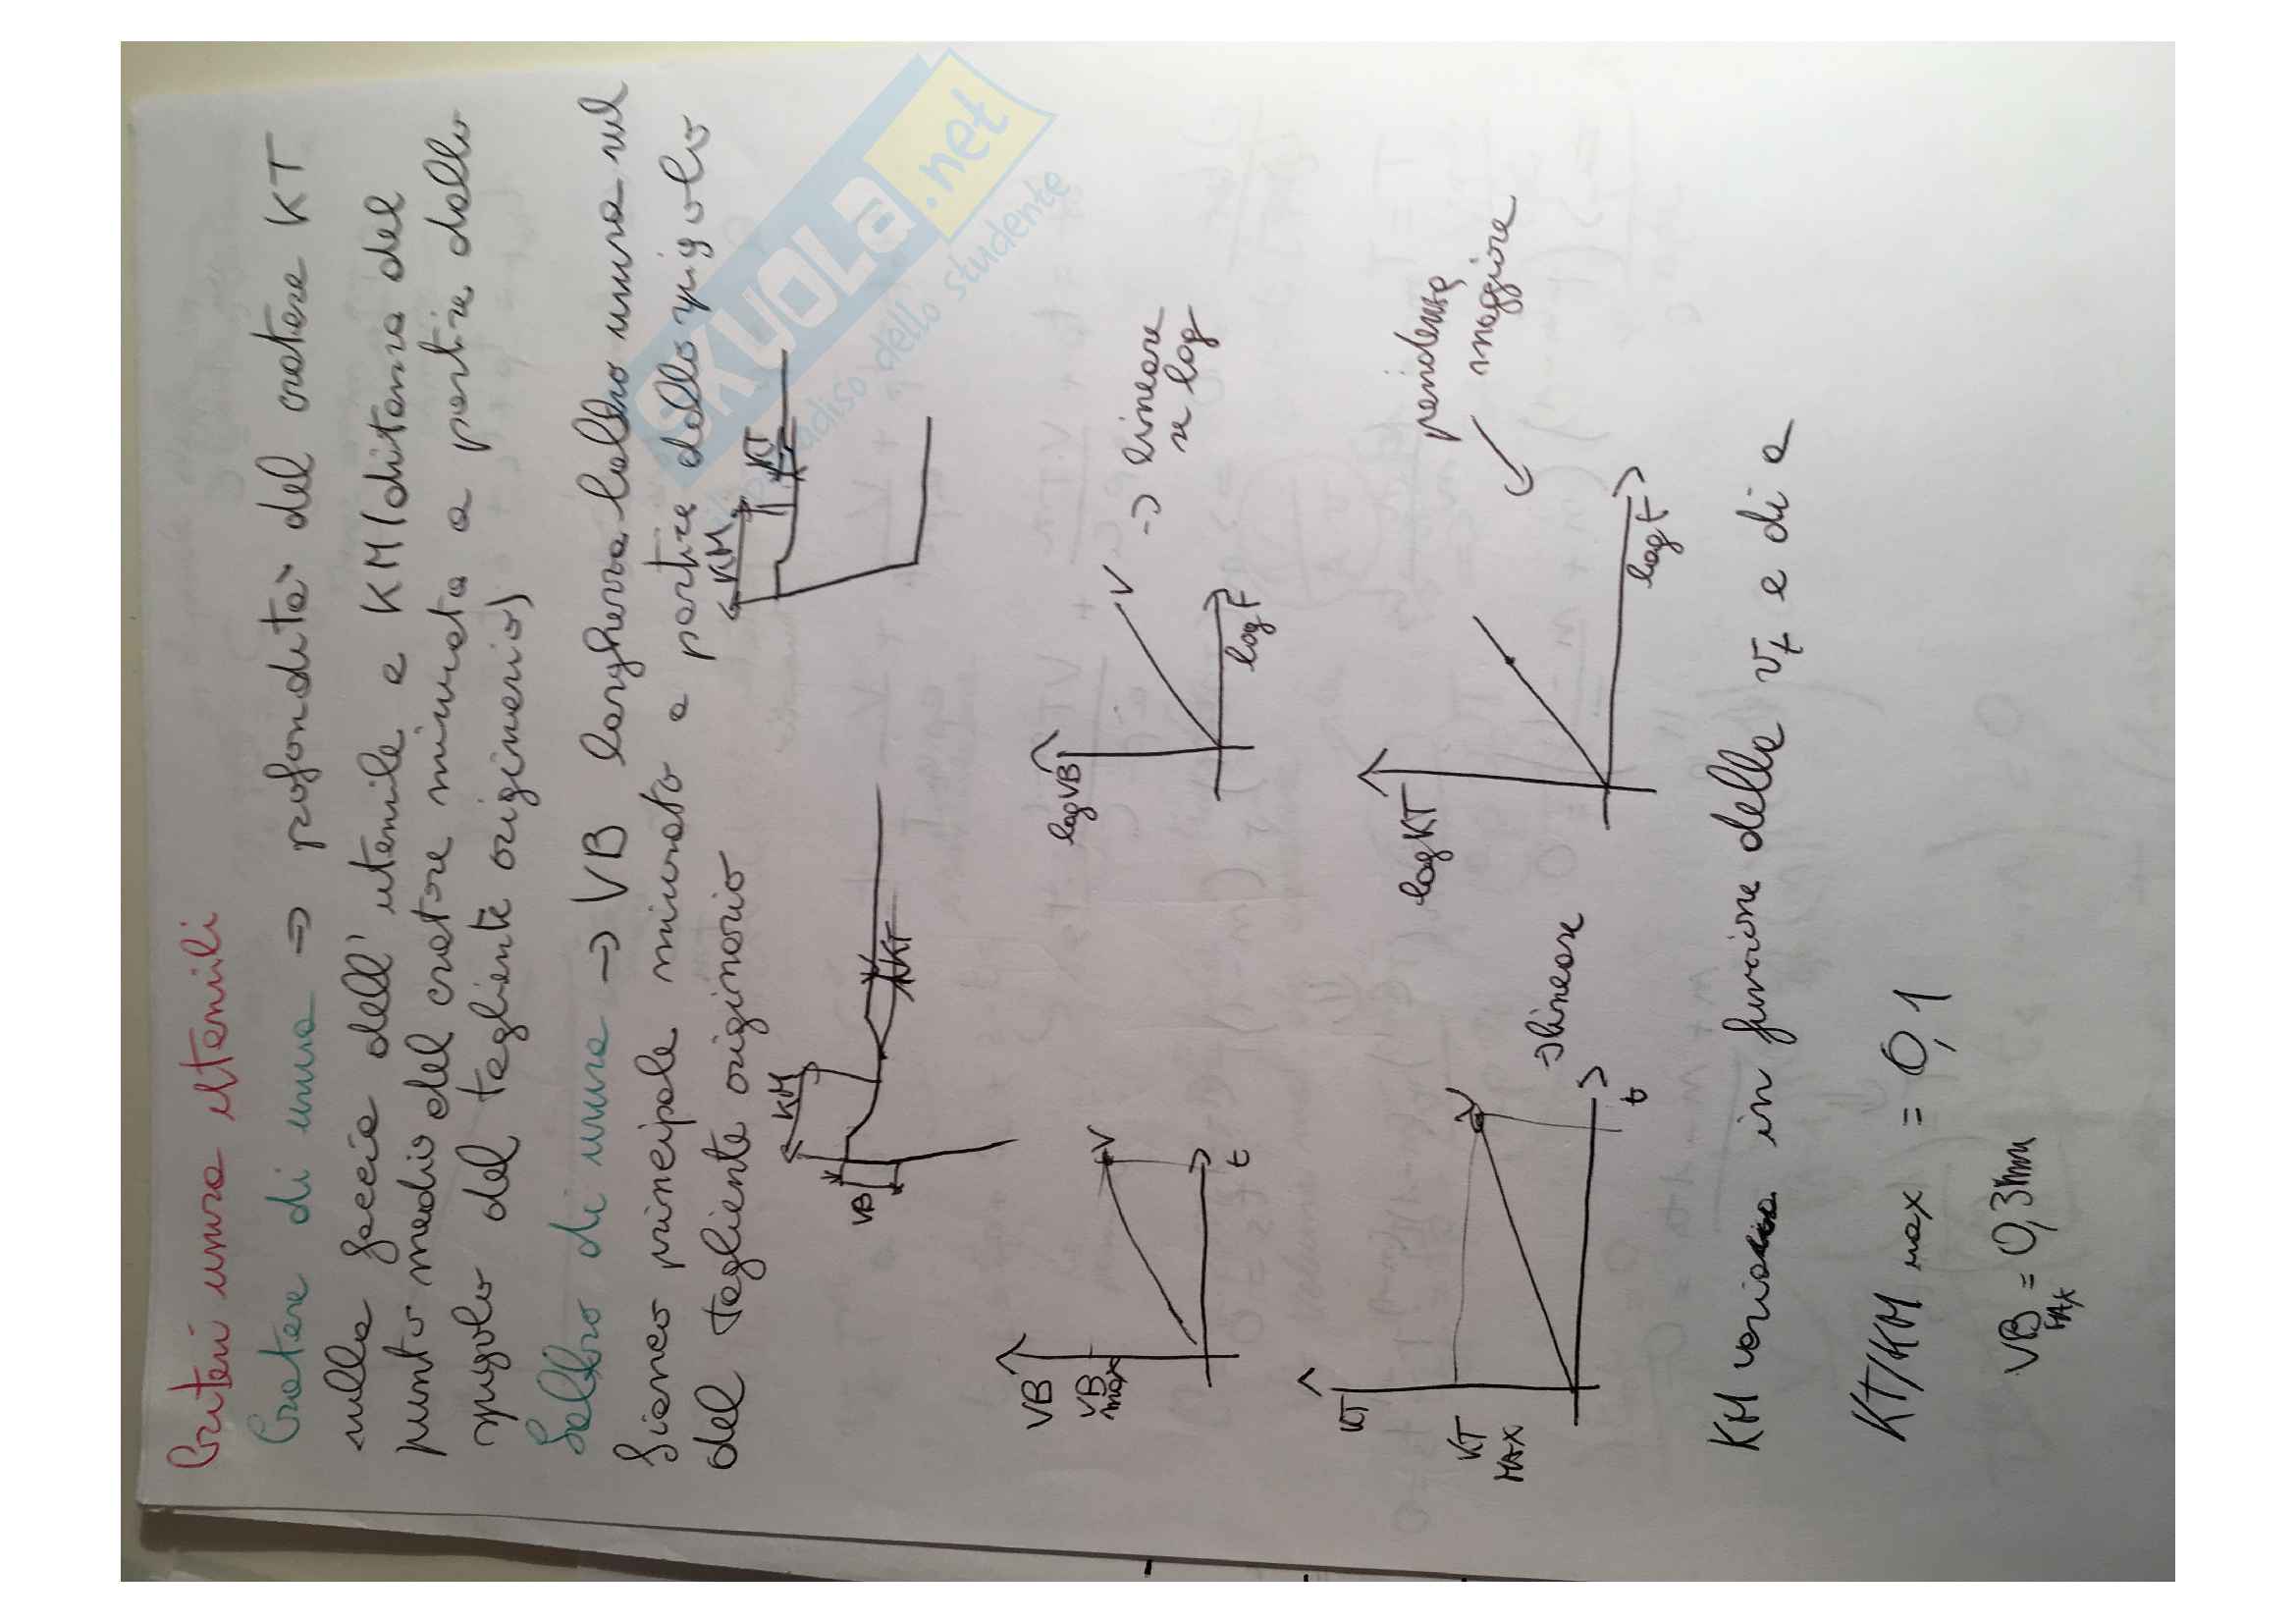 Criteri usura utensili
Cratere di usura => profondità del cratere KT
sulla faccia dell'utensile e KM (distanza del
punto medio del cratere misurata a partire dallo
spigolo del tagliente originario)
Labbro di usura => VB larghezza labbro usura sul
fianco principale misurato a partire dallo spigolo
del tagliente originario
KM
VB
KT
KM
KT
VB
VB max
V
t
log VB
V
log t
-> lineare se log
KT
KT MAX
V
t
-> lineare
log KT
log t
pendenza maggiore
KM varia in funzione della vt e di a
KT/KM max = 0,1
VB MAX = 0,3mm
SKUOLA.net
paradiso dello studente